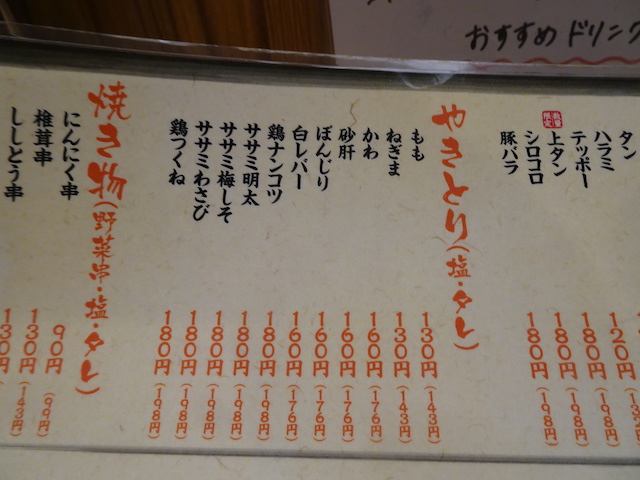 おすすめドリンク
タン
ハラミ
テッポー 120円
数量限定
上タン 180円(198円)
シロコロ 180円(198円)
豚バラ 180円(198円)
やきとり(塩・タレ)
もも 130円(143円)
ねぎま 130円(143円)
かわ 160円(176円)
砂肝 160円(176円)
ぼんじり 160円(176円)
白レバー 160円(176円)
鶏ナンコツ 180円(198円)
ササミ明太 180円(198円)
ササミ梅しそ 180円(198円)
ササミわさび 180円(198円)
鶏つくね 180円(198円)
焼き物(野菜串・塩・タレ)
にんにく串 90円(99円)
椎茸串 130円(143円)
ししとう串 130円(143円)